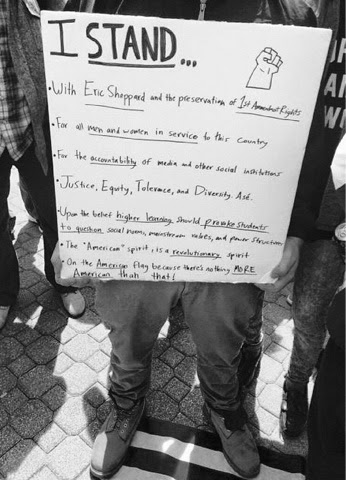 I STAND...
• With Eric Sheppard and the preservation of 1st Amendment Rights
• For all men and women in service to this country
• For the accountability of media and other social institutions
• Justice, Equity, Tolerance, and Diversity. Asé.
• Upon the belief higher learning should provoke students
to question social norms, mainstream values, and power structures
• The "American" spirit, is a revolutionary spirit
• On the American flag because there's nothing MORE
American than that!